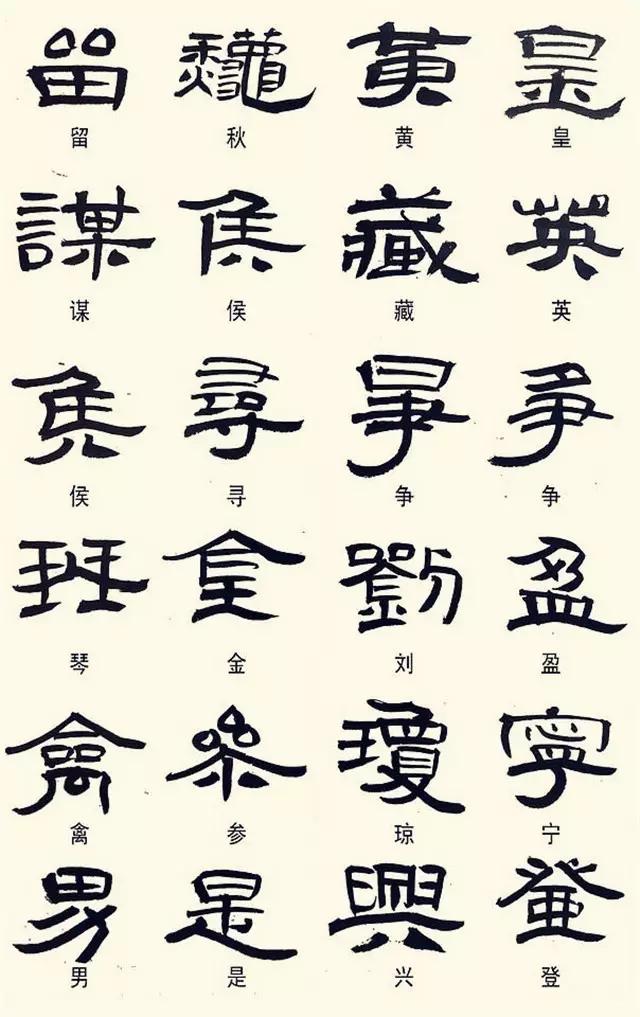 留 秋 黄 皇
留 秋 黄 皇
謀 侯 藏 英
谋 侯 藏 英
侯 尋 爭 爭
侯 寻 争 争
琴 金 劉 盈
琴 金 刘 盈
禽 參 瓊 寧
禽 参 琼 宁
男 是 興 登
男 是 兴 登